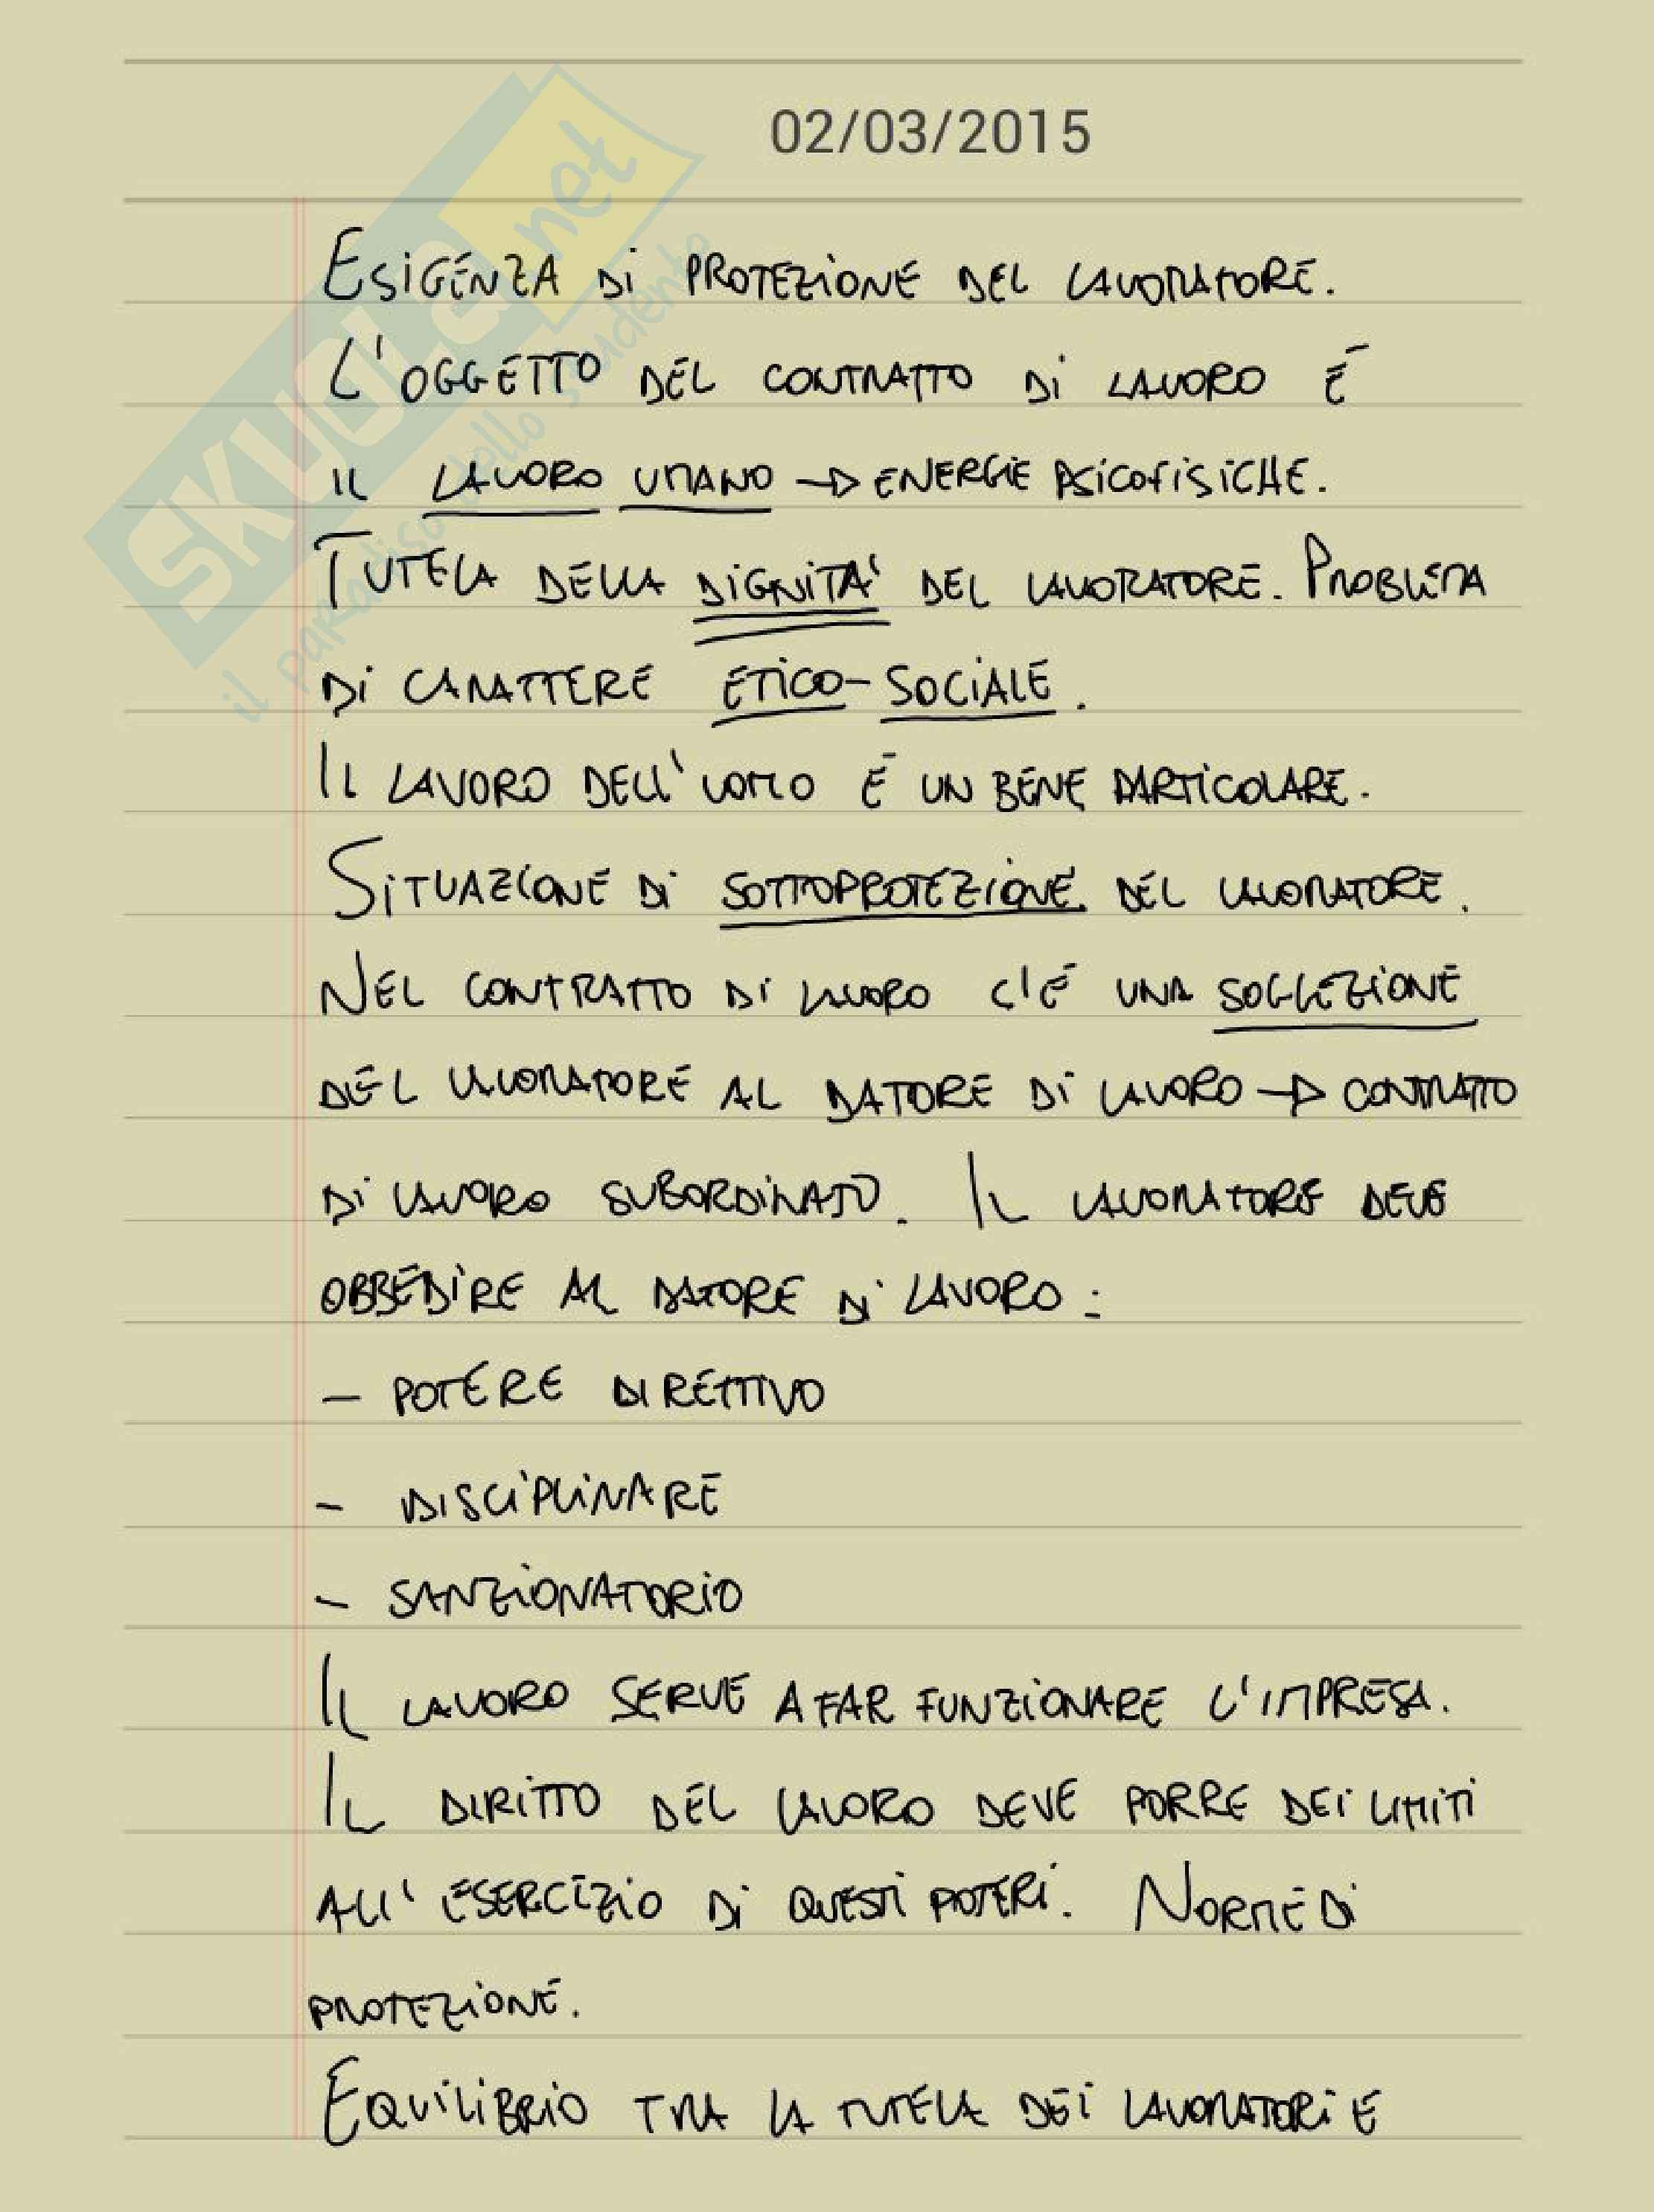 02/03/2015
SKUOLA.net
il paradiso dello studente
ESIGENZA DI PROTEZIONE DEL LAVORATORE.
L'OGGETTO DEL CONTRATTO DI LAVORO È
IL LAVORO UMANO → ENERGIE PSICOFISICHE.
TUTELA DELLA DIGNITA' DEL LAVORATORE. PROBLEMA
DI CARATTERE ETICO-SOCIALE.
IL LAVORO DELL'UOMO È UN BENE PARTICOLARE.
SITUAZIONE DI SOTTOPROTEZIONE DEL LAVORATORE.
NEL CONTRATTO DI LAVORO C'È UNA SOGGEZIONE
DEL LAVORATORE AL DATORE DI LAVORO → CONTRATTO
DI LAVORO SUBORDINATO. IL LAVORATORE DEVE
OBBEDIRE AL DATORE DI LAVORO:
- POTERE DIRETTIVO
- DISCIPLINARE
- SANZIONATORIO
IL LAVORO SERVE A FAR FUNZIONARE L'IMPRESA.
IL DIRITTO DEL LAVORO DEVE PORRE DEI LIMITI
ALL'ESERCIZIO DI QUESTI POTERI. NORME DI
PROTEZIONE.
EQUILIBRIO TRA LA TUTELA DEI LAVORATORI E